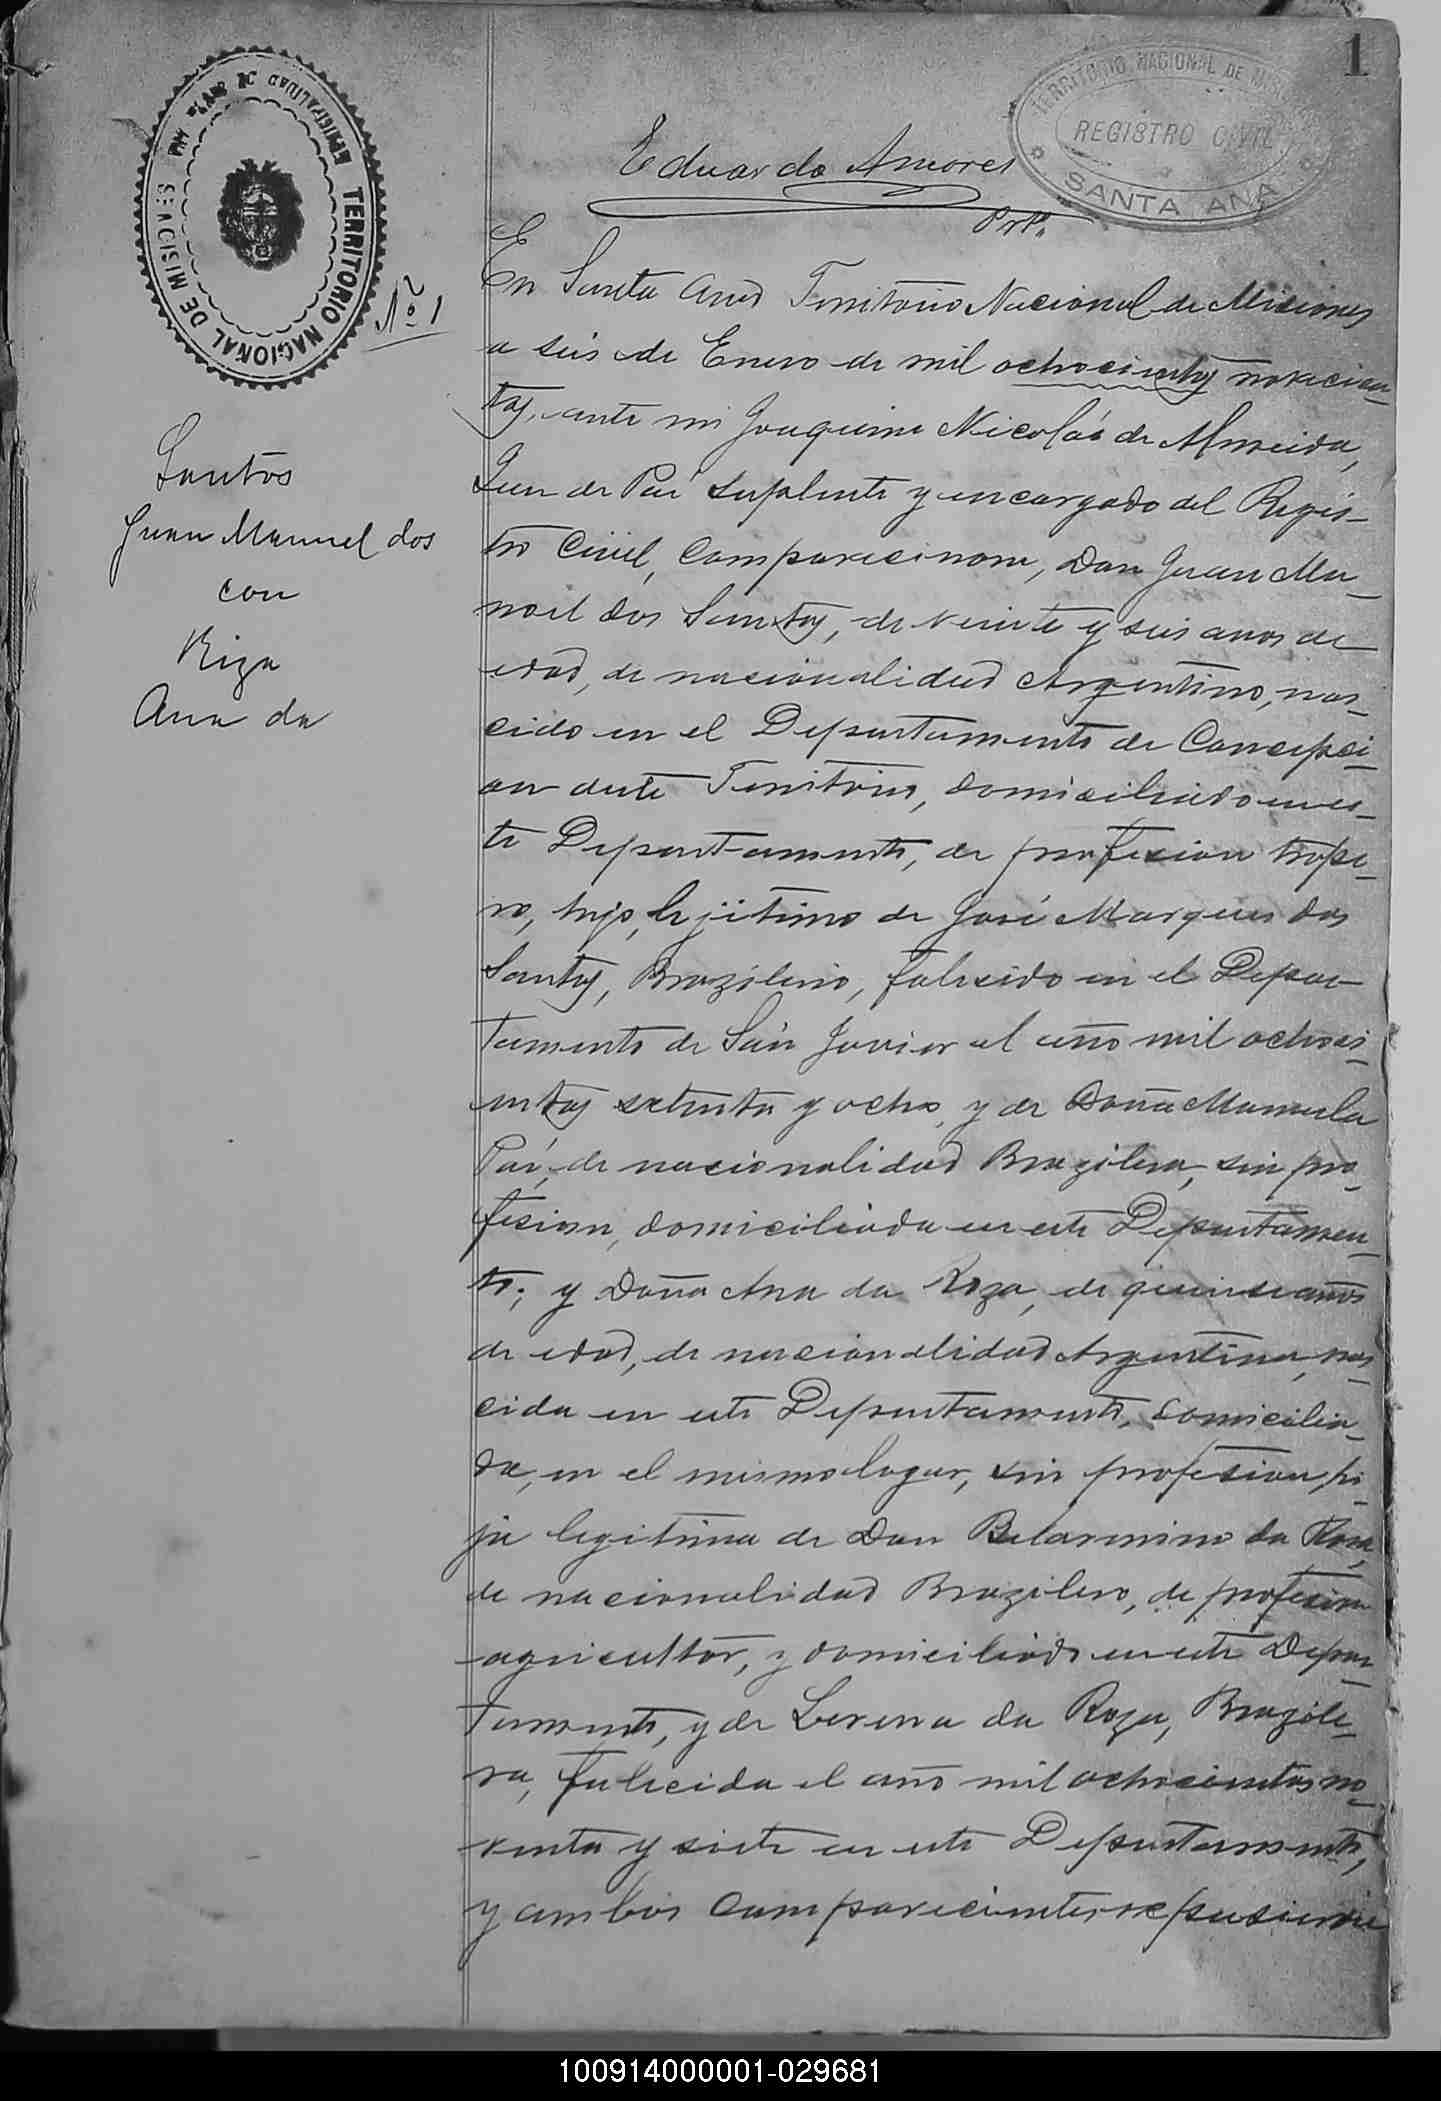 1
TERRITORIO NACIONAL DE MISIONES
MUNICIPALIDAD DE SANTA ANA
TERRITORIO NACIONAL DE MISIONES
REGISTRO CIVIL
SANTA ANA
Eduardo Amores
Nº 1
Santos
Juan Manuel dos
con
Riza
Ana da
En Santa Ana Territorio Nacional de Misiones
a seis de Enero de mil ochocientos novecien-
tos, ante mi Joaquim Nicolás de Almeida,
Juez de Paz Suplente y encargado del Regis-
tro Civil, Comparecieron, Don Juan Ma-
noel dos Santos, de veinte y seis anos de
edad, de nacionalidad Argentino, nas-
cido en el Departamento de Concepci-
on deste Territorio, domiciliado en es-
te Departamento, de profesion trope-
ro, hijo lejitimo de José Marques dos
Santos, Brazilero, falecido en el Depar-
tamento de Sán Javier el año mil ochosi-
entos setenta y ocho, y de Doña Manuela
Paz, de nacionalidad Brazilera, sin pro-
fesion, domiciliada en este Departamen-
to; y Doña Ana da Roza, de quinse años
de edad, de nacionalidad Argentina, nas-
cida en este Departamento, domicilia-
da en el mismo lugar, sin profesion, hi-
ja legitima de Don Belarmino da Rosa,
de nacionalidad Brazilero, de profesion
agricultor, y domiciliado en este Depar-
tamento, y de Lerena da Roza, Brazile-
ra, falecida el año mil ochocientos no-
venta y siete en este Departamento,
y ambos comparecientes espusieron
100914000001-029681